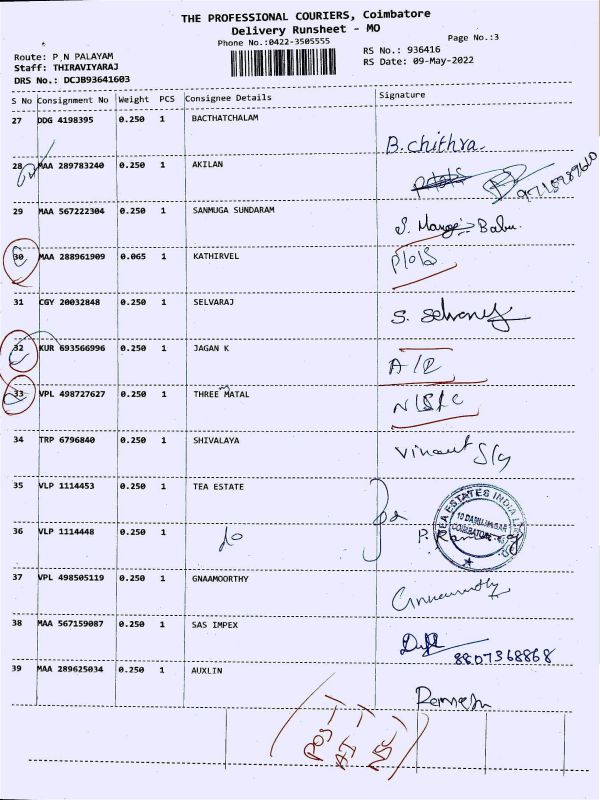 THE PROFESSIONAL COURIERS, Coimbatore
Delivery Runsheet - MO
Phone No.:0422-3505555
Page No.:3
Route: P N PALAYAM
RS No.: 936416
Staff: THIRAVIYARAJ
RS Date: 09-May-2022
DRS No.: DCJB93641603
S No Consignment No Weight PCS Consignee Details Signature
27 DDG 4198395 0.250 1 BACTHATCHALAM
B. Chithra
28 MAA 289783240 0.250 1 AKILAN
29 MAA 567222304 0.250 1 SANMUGA SUNDARAM
Babu
30 MAA 288961909 0.065 1 KATHIRVEL
P/O/S
31 CGY 20032848 0.250 1 SELVARAJ
S.
32 KUR 693566996 0.250 1 JAGAN K
A/R
33 VPL 498727627 0.250 1 THREE MATAL
34 TRP 6796840 0.250 1 SHIVALAYA
35 VLP 1114453 0.250 1 TEA ESTATE
TEA ESTATES INDIA
COIMBATORE
36 VLP 1114448 0.250 1 do
P.
37 VPL 498505119 0.250 1 GNAAMOORTHY
38 MAA 567159087 0.250 1 SAS IMPEX
8807368868
39 MAA 289625034 0.250 1 AUXLIN